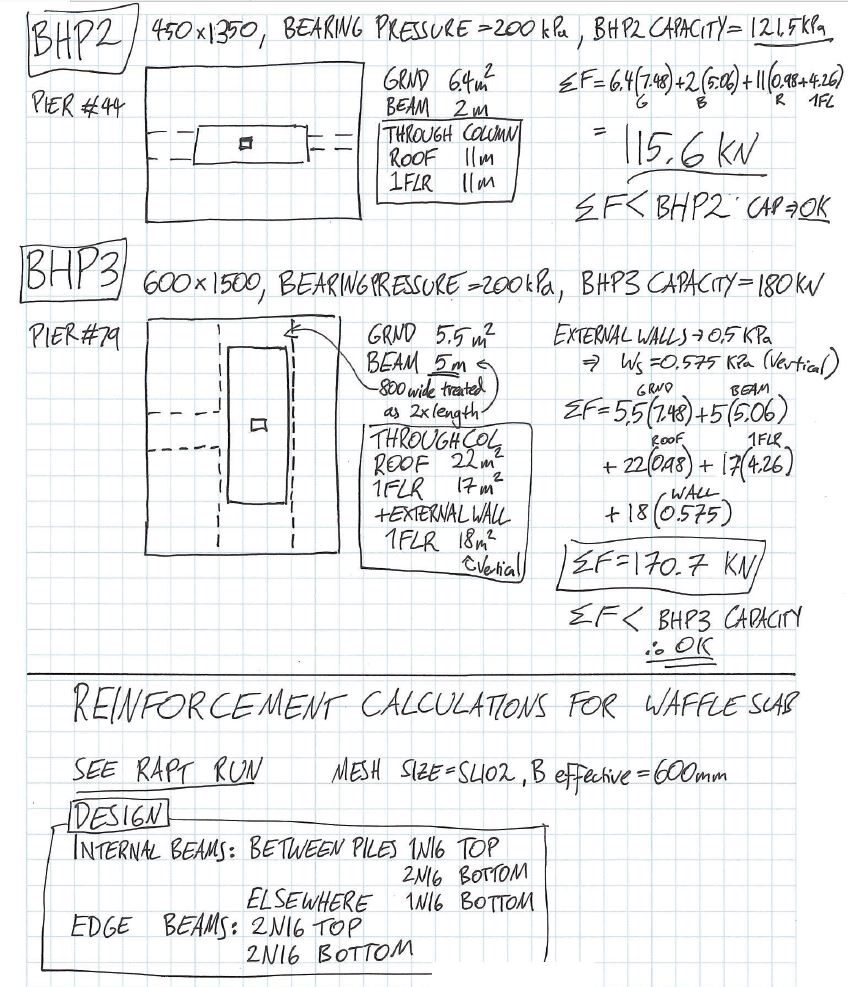 BHP2 450x1350, BEARING PRESSURE = 200 kPa, BHP2 CAPACITY = 121.5 kPa
PIER #44
GRND 6.4m²
BEAM 2m
THROUGH COLUMN
ROOF 11m
1FLR 11m
ΣF = 6.4(7.48)+2(5.06)+11(0.98+4.26)
G B R 1FL
= 115.6 KN
ΣF < BHP2 CAP ⇒ OK
BHP3 600x1500, BEARING PRESSURE = 200 kPa, BHP3 CAPACITY = 180 kN
PIER #79
GRND 5.5m²
BEAM 5m
800 wide treated
as 2x length
THROUGH COL
ROOF 22m²
1FLR 17m²
+EXTERNAL WALL
1FLR 18m²
↑Vertical
EXTERNAL WALLS → 0.5 KPa
⇒ Ws = 0.575 KPa (Vertical)
GRND BEAM
ΣF = 5.5(7.48)+5(5.06)
ROOF 1FLR
+ 22(0.98) + 17(4.26)
WALL
+ 18(0.575)
ΣF = 170.7 KN
ΣF < BHP3 CAPACITY
∴ OK
REINFORCEMENT CALCULATIONS FOR WAFFLE SLAB
SEE RAPT RUN MESH SIZE = SL102, B effective = 600mm
DESIGN
INTERNAL BEAMS: BETWEEN PILES 1N16 TOP
2N16 BOTTOM
ELSEWHERE 1N16 BOTTOM
EDGE BEAMS: 2N16 TOP
2N16 BOTTOM